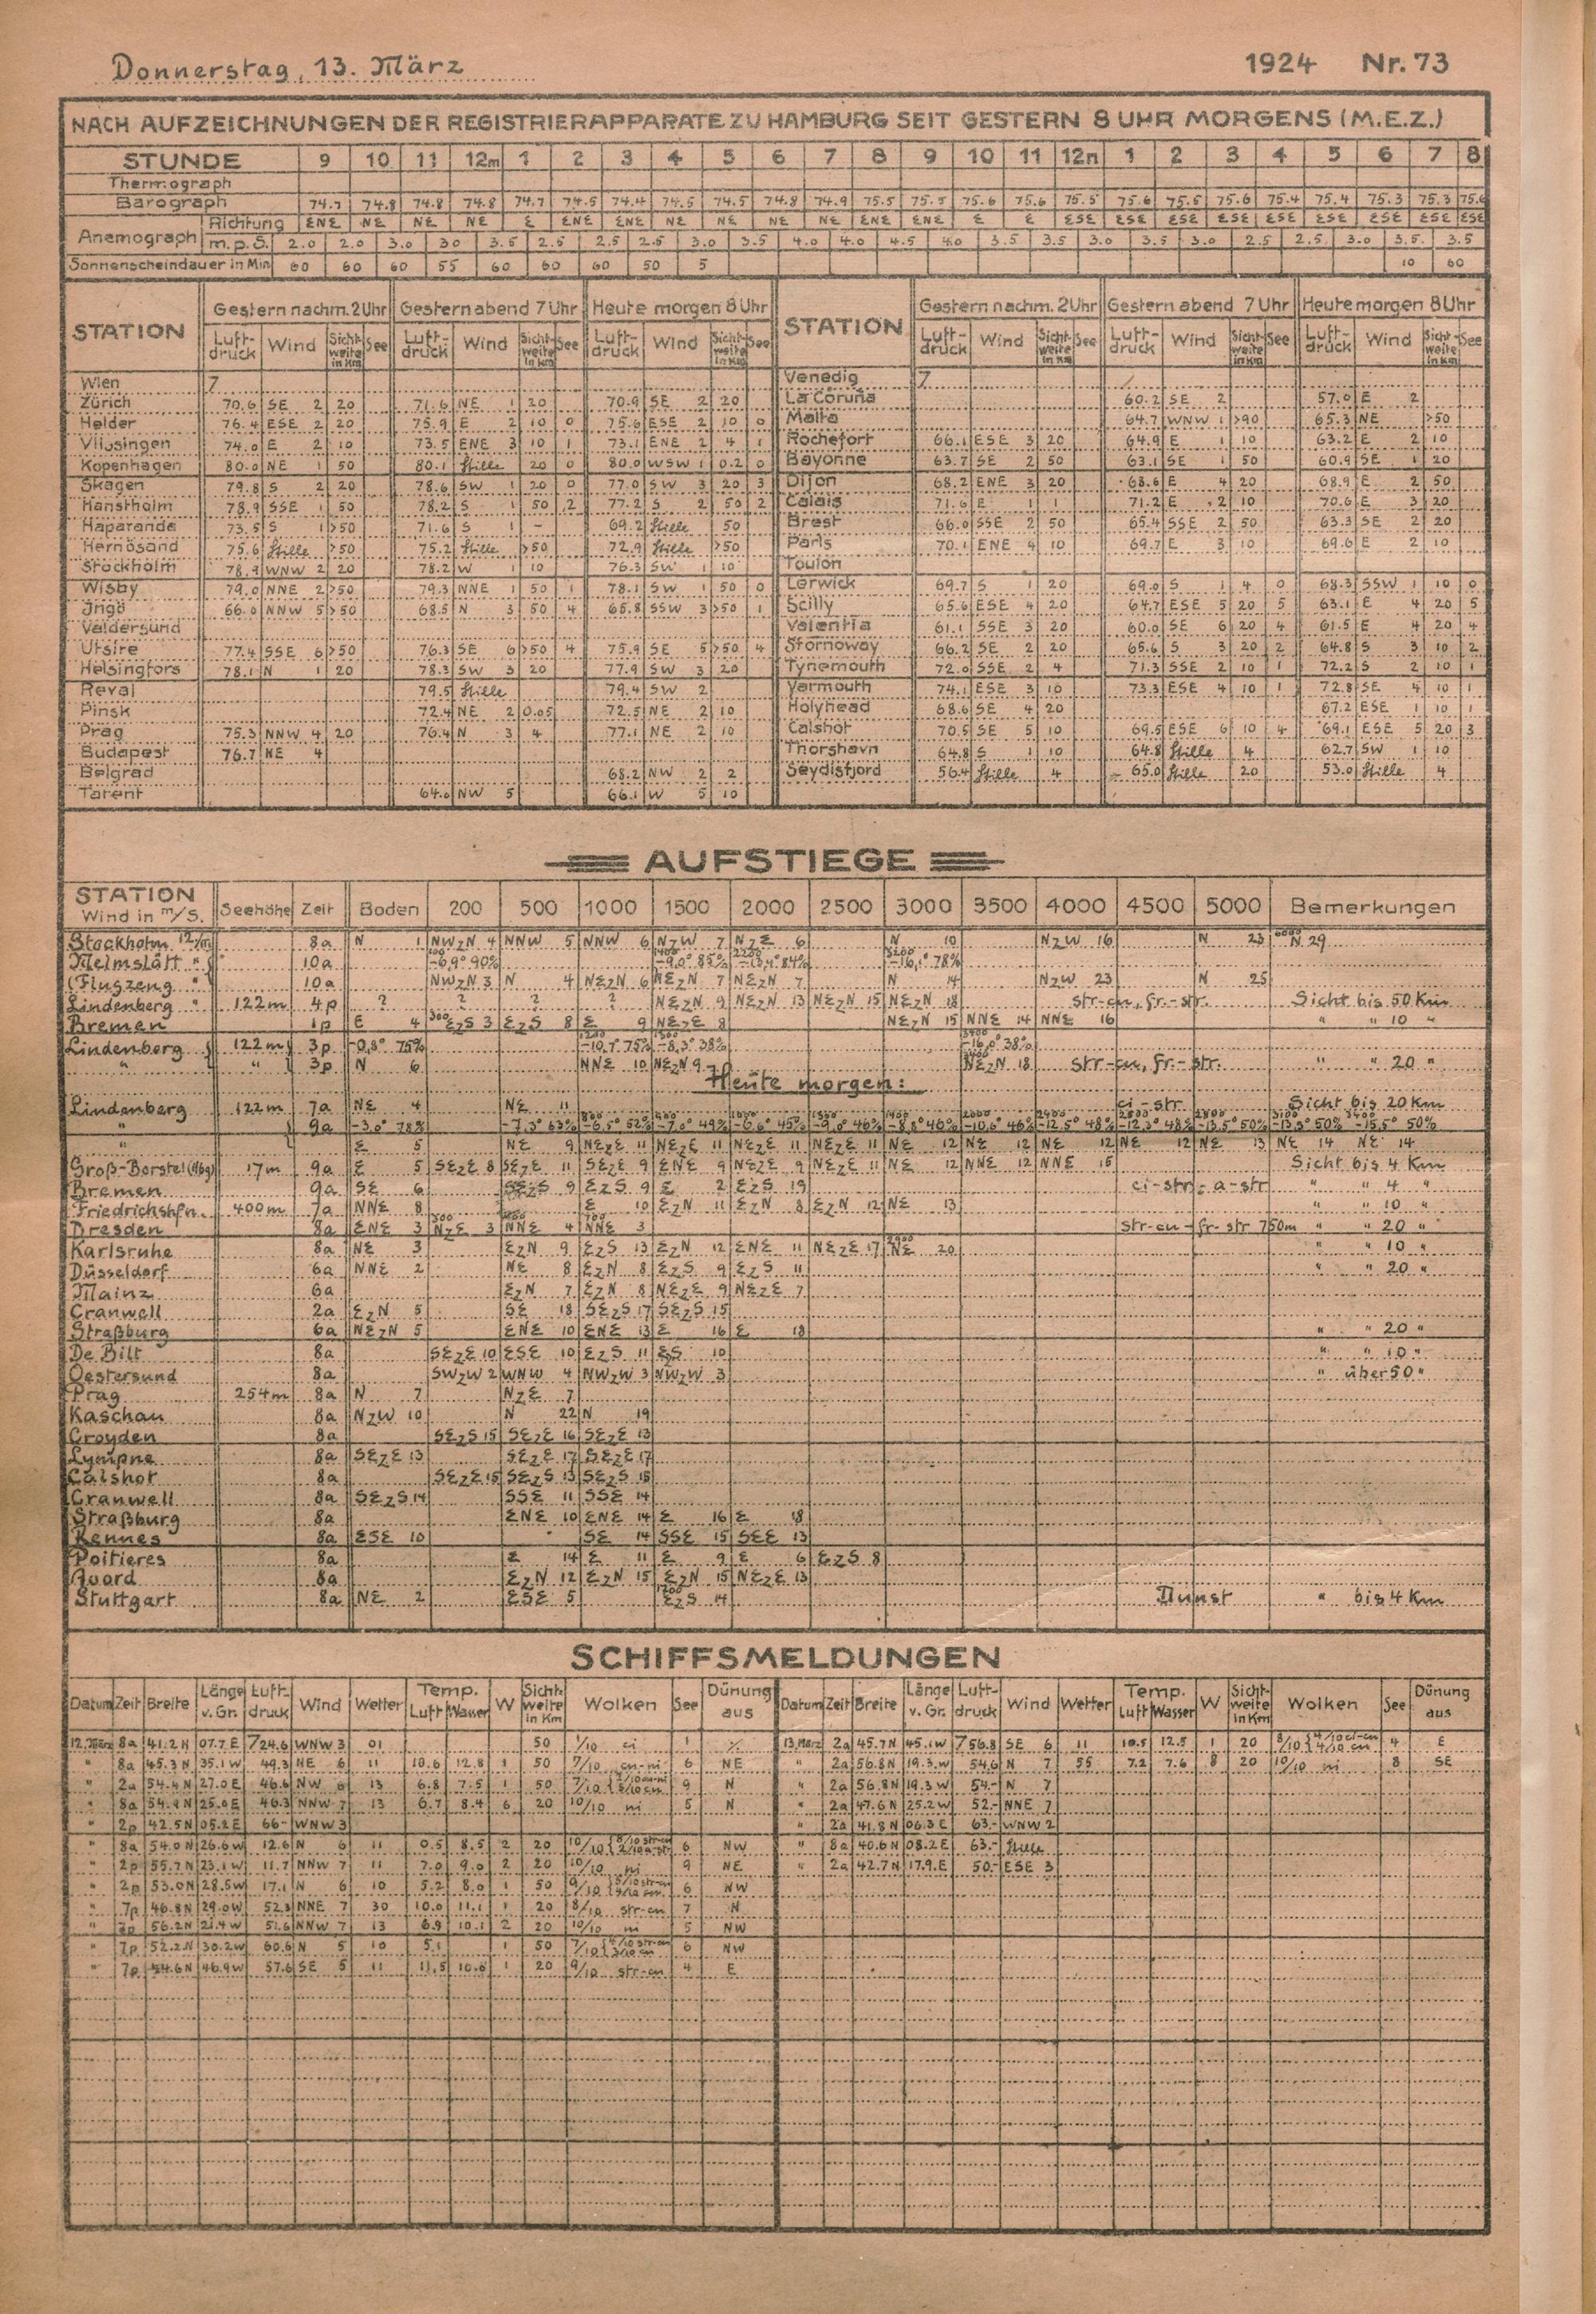 Donnerstag, 13. März 1924 Nr. 73
NACH AUFZEICHNUNGEN DER REGISTRIERAPPARATE ZU HAMBURG SEIT GESTERN 8 UHR MORGENS (M.E.Z.)
STUNDE 9 10 11 12m 1 2 3 4 5 6 7 8 9 10 11 12n 1 2 3 4 5 6 7 8
Thermograph
Barograph 74.7 74.8 74.8 74.8 74.7 74.5 74.4 74.5 74.5 74.8 74.9 75.5 75.5 75.6 75.6 75.5 75.6 75.5 75.6 75.4 75.4 75.3 75.3
Anemograph Richtung ENE NE NE NE E ENE ENE NE NE NE NE ENE ENE E E ESE ESE ESE ESE ESE ESE ESE ESE ESE
m.p.S. 2.0 2.0 3.0 3.0 3.5 2.5 2.5 2.5 3.0 3.5 4.0 4.0 4.5 4.0 3.5 3.5 3.0 3.5 3.0 2.5 2.5 3.0 3.5 3.5
Sonnenscheindauer in Min 60 60 60 55 60 60 60 50 5 10 60
STATION Gestern nachm. 2 Uhr Gestern abend 7 Uhr Heute morgen 8 Uhr STATION Gestern nachm. 2 Uhr Gestern abend 7 Uhr Heute morgen 8 Uhr
Luftdruck Wind Sichtweite in Km See Luftdruck Wind Sichtweite in Km See Luftdruck Wind Sichtweite in Km See Luftdruck Wind Sichtweite in Km See Luftdruck Wind Sichtweite in Km See Luftdruck Wind Sichtweite in Km See
Wien 7 Venedig 7
Zürich 70.6 SE 2 20 71.6 NE 1 20 70.9 SE 2 20 La Coruña 60.2 SE 2 57.0 E 2
Helder 76.4 ESE 2 20 75.9 E 2 10 0 75.6 ESE 2 10 0 Malta 64.7 WNW 1 >90 65.3 NE >50
Vlissingen 74.0 E 2 10 73.5 ENE 3 10 1 73.1 ENE 2 4 1 Rochefort 66.1 ESE 3 20 64.9 E 1 10 63.2 E 2 10
Kopenhagen 80.0 NE 1 50 80.1 Stille 20 0 80.0 WSW 1 0.2 0 Bayonne 63.7 SE 2 50 63.1 SE 1 50 60.9 SE 1 20
Skagen 79.8 S 2 20 78.6 SW 1 20 0 77.0 SW 3 20 3 Dijon 68.2 ENE 3 20 68.6 E 4 20 68.9 E 2 50
Hanstholm 78.9 SSE 1 50 78.2 S 1 50 2 77.2 S 2 50 2 Calais 71.6 E 1 1 71.2 E 2 10 70.6 E 3 20
Haparanda 73.5 S 1 >50 71.6 S 1 - 69.2 Stille 50 Brest 66.0 SSE 2 50 65.4 SSE 2 50 63.3 SE 2 20
Hernösand 75.6 Stille >50 75.2 Stille >50 72.9 Stille >50 Paris 70.1 ENE 4 10 69.7 E 3 10 69.6 E 2 10
Stockholm 78.9 WNW 2 20 78.2 W 1 10 76.3 SW 1 10 Toulon
Wisby 79.0 NNE 2 >50 79.3 NNE 1 50 1 78.1 SW 1 50 0 Lerwick 69.7 S 1 20 69.0 S 1 4 0 68.3 SSW 1 10 0
Ingö 66.0 NNW 5 >50 68.5 N 3 50 4 65.8 SSW 3 >50 1 Scilly 65.6 ESE 4 20 64.7 ESE 5 20 5 63.1 E 4 20 5
Valdersund Valentia 61.1 SSE 3 20 60.0 SE 6 20 4 61.5 E 4 20 4
Utsire 77.4 SSE 6 >50 76.3 SE 6 >50 4 75.9 SE 5 >50 4 Stornoway 66.2 SE 2 20 65.6 S 3 20 2 64.8 S 3 10 2
Helsingfors 78.1 N 1 20 78.3 SW 3 20 77.9 SW 3 20 Tynemouth 72.0 SSE 2 4 71.3 SSE 2 10 1 72.2 S 2 10 1
Reval 79.5 Stille 79.4 SW 2 Yarmouth 74.1 ESE 3 10 73.3 ESE 4 10 1 72.8 SE 4 10 1
Pinsk 72.4 NE 2 0.05 72.5 NE 2 10 Holyhead 68.6 SE 4 20 67.2 ESE 1 10 1
Prag 75.3 NNW 4 20 76.4 N 3 4 77.1 NE 2 10 Calshot 70.5 SE 5 10 69.5 ESE 6 10 4 69.1 ESE 5 20 3
Budapest 76.7 NE 4 Thorshavn 64.8 S 1 10 64.8 Stille 4 62.7 SW 1 10
Belgrad 68.2 NW 2 2 Seydisfjord 56.4 Stille 4 65.0 Stille 20 53.0 Stille 4
Tarent 64.0 NW 5 66.1 W 5 10
AUFSTIEGE
STATION Wind in m/S. Seehöhe Zeit Boden 200 500 1000 1500 2000 2500 3000 3500 4000 4500 5000 Bemerkungen
Stockholm 12/III 8a N 1 NWzN 4 NNW 5 NNW 6 NzW 7 NzE 6 N 10 NzW 16 N 23 6000 N 29
Malmslätt " 10a 100 -6,9° 90% 1400 -9,0° 85% 2200 -13,4° 84% 3200 -16,1° 78%
(Flugzeug " 10a NWzN 3 N 4 NEzN 6 NEzN 7 NEzN 7 N 14 NzW 23 N 25
Lindenberg " 122m 4p ? ? ? ? NEzN 9 NEzN 13 NEzN 15 NEzN 18 str-cu, fr.-str. Sicht bis 50 Km
Bremen 1p E 4 300 EzS 3 EzS 8 E 9 NEzE 8 NEzN 15 NNE 14 NNE 16 " " 10 "
Lindenberg 122m 3p -0,8° 75% 1200 -10,7° 75% 1500 -8,3° 38% 3400 -16,0° 38%
" " 3p N 6 NNE 10 NEzN 9 NEzN 18 str-cu, fr.-str. " " 20 "
Heute morgen:
Lindenberg 122m 7a NE 4 NE 11 ci-str. Sicht bis 20 Km
" 9a -3,0° 78% -7,3° 63% -6,5° 52% -7,0° 49% -6,6° 45% -9,0° 46% -8,8° 46% -10,6° 46% -12,5° 48% -12,3° 48% -13,5° 50% -13,5° 50% -15,5° 50%
" E 5 NE 9 NEzE 11 NEzE 11 NEzE 11 NEzE 11 NE 12 NE 12 NE 12 NE 12 NE 13 NE 14 NE 14
Groß-Borstel (Hbg) 17m 9a E 5 SEzE 8 SEzE 11 SEzE 9 ENE 9 NEzE 9 NEzE 11 NE 12 NNE 12 NNE 15 Sicht bis 4 Km
Bremen 9a SE 6 9 EzS 9 E 2 EzS 19 ci-str, a-str " " 4 "
Friedrichshfn. 400m 7a NNE 8 E 10 EzN 11 EzN 8 EzN 12 NE 13 " " 10 "
Dresden 8a ENE 3 300 NzE 3 NNE 4 NNE 3 str-cu - fr-str 750m " " 20 "
Karlsruhe 8a NE 3 EzN 9 EzS 13 EzN 12 ENE 11 NEzE 17 2900 NE 20 " " 10 "
Düsseldorf 6a NNE 2 NE 8 EzN 8 EzS 9 EzS 11 " " 20 "
Mainz 6a EzN 7 EzN 8 NEzE 9 NEzE 7
Cranwell 2a EzN 5 SE 18 SEzS 17 SEzS 15
Straßburg 6a NEzN 5 ENE 10 ENE 13 E 16 E 18 " " 20 "
De Bilt 8a SEzE 10 ESE 10 EzS 11 10 " " 10 "
Oestersund 8a SWzW 2 WNW 4 NWzW 3 NWzW 3 " über 50 "
Prag 254m 8a N 7 NzE 7
Kaschau 8a NzW 10 N 22 N 19
Croyden 8a SEzS 15 SEzE 16 SEzE 13
Lympne 8a SEzE 13 SEzE 17 SEzE 17
Calshot 8a SEzE 15 SEzS 13 SEzS 15
Cranwell 8a SEzS 14 SSE 11 SSE 14
Straßburg 8a ENE 10 ENE 14 E 16 E 18
Rennes 8a ESE 10 SE 14 SSE 15 SEE 13
Poitieres 8a E 14 E 11 E 9 E 6 EzS 8
Avord 8a EzN 12 EzN 15 EzN 15 NEzE 13
Stuttgart 8a NE 2 ESE 5 1200 EzS 14 Dunst " bis 4 Km
SCHIFFSMELDUNGEN
Datum Zeit Breite Länge v. Gr. Luftdruck Wind Wetter Temp. Luft Wasser W Sichtweite in Km Wolken See Dünung aus Datum Zeit Breite Länge v. Gr. Luftdruck Wind Wetter Temp. Luft Wasser W Sichtweite in Km Wolken See Dünung aus
12. März 8a 41.2 N 07.7 E 724.6 WNW 3 01 50 1/10 ci 1 13. März 2a 45.7 N 45.1 W 756.8 SE 6 11 10.5 12.5 1 20 8/10 4 E
" 8a 45.3 N 35.1 W 49.3 NE 6 11 10.6 12.8 1 50 7/10 cu-ni 6 NE " 2a 56.8 N 19.3 W 54.6 N 7 55 7.2 7.6 8 20 10/10 ni 8 SE
" 2a 54.4 N 27.0 E 46.6 NW 6 13 6.8 7.5 1 50 7/10 9 N " 2a 56.8 N 19.3 W 54.- N 7
" 8a 54.4 N 25.0 E 46.3 NNW 7 13 6.7 8.4 6 20 10/10 ni 5 N " 2a 47.6 N 25.2 W 52.- NNE 7
" 2p 42.5 N 05.2 E 66- WNW 3 " 2a 41.8 N 06.3 E 63.- WNW 2
" 8a 54.0 N 26.6 W 12.6 N 6 11 0.5 8.5 2 20 10/10 6 NW " 8a 40.6 N 08.2 E 63.- Stille
" 2p 55.7 N 23.1 W 11.7 NNW 7 11 7.0 9.0 2 20 10/10 ni 9 NE " 2a 42.7 N 17.9 E 50.- ESE 3
" 2p 53.0 N 28.5 W 17.1 N 6 10 5.2 8.0 1 50 9/10 6 NW
" 7p 46.8 N 29.0 W 52.3 NNE 7 30 10.0 11.1 1 20 8/10 str-cu 7 N
" 7p 56.2 N 21.4 W 51.6 NNW 7 13 6.9 10.1 2 20 10/10 ni 5 NW
" 7p 52.2 N 30.2 W 60.6 N 5 10 5.1 1 50 7/10 6 NW
" 7p 54.6 N 46.9 W 57.6 SE 5 11 11.5 10.6 1 20 9/10 str-cu 4 E